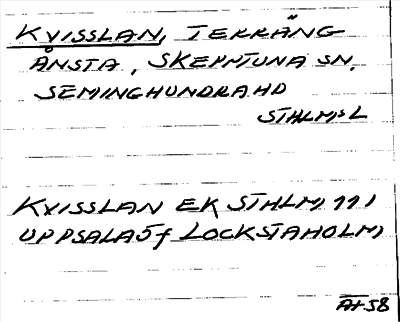 KVISSLAN, TERRÄNG
ÅNSTA, SKEPPTUNA SN.
SEMINGHUNDRA HD
STHLMS L
KVISSLAN EK STHLM 111
UPPSALA 5f LOCKSTAHOLM